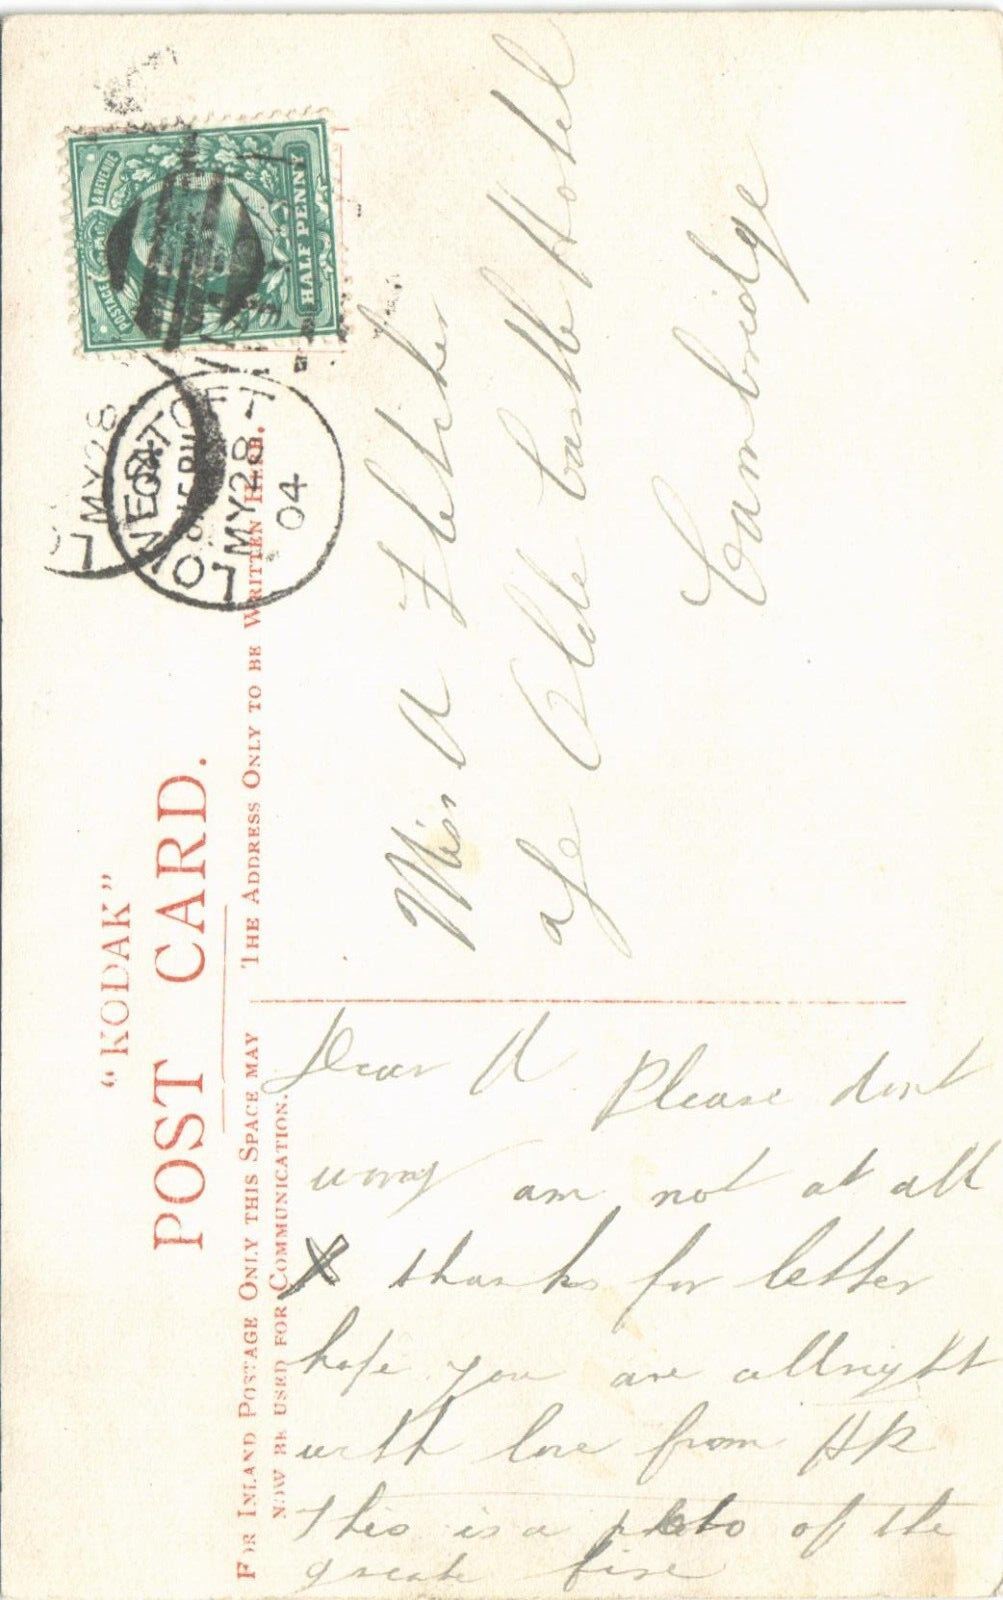 "KODAK"
POST CARD.
FOR INLAND POSTAGE ONLY THIS SPACE MAY
NOW BE USED FOR COMMUNICATION.
THE ADDRESS ONLY TO BE WRITTEN HERE.
POSTAGE & REVENUE
HALF PENNY
LOWESTOFT
MY 28
04
MY 28
04
Miss A Fletcher
Olde Castle Hotel
Cambridge
Dear A Please dont
worry am not at all
X thanks for letter
hope you are allright
with love from HR
This is a photo of the
greate fire